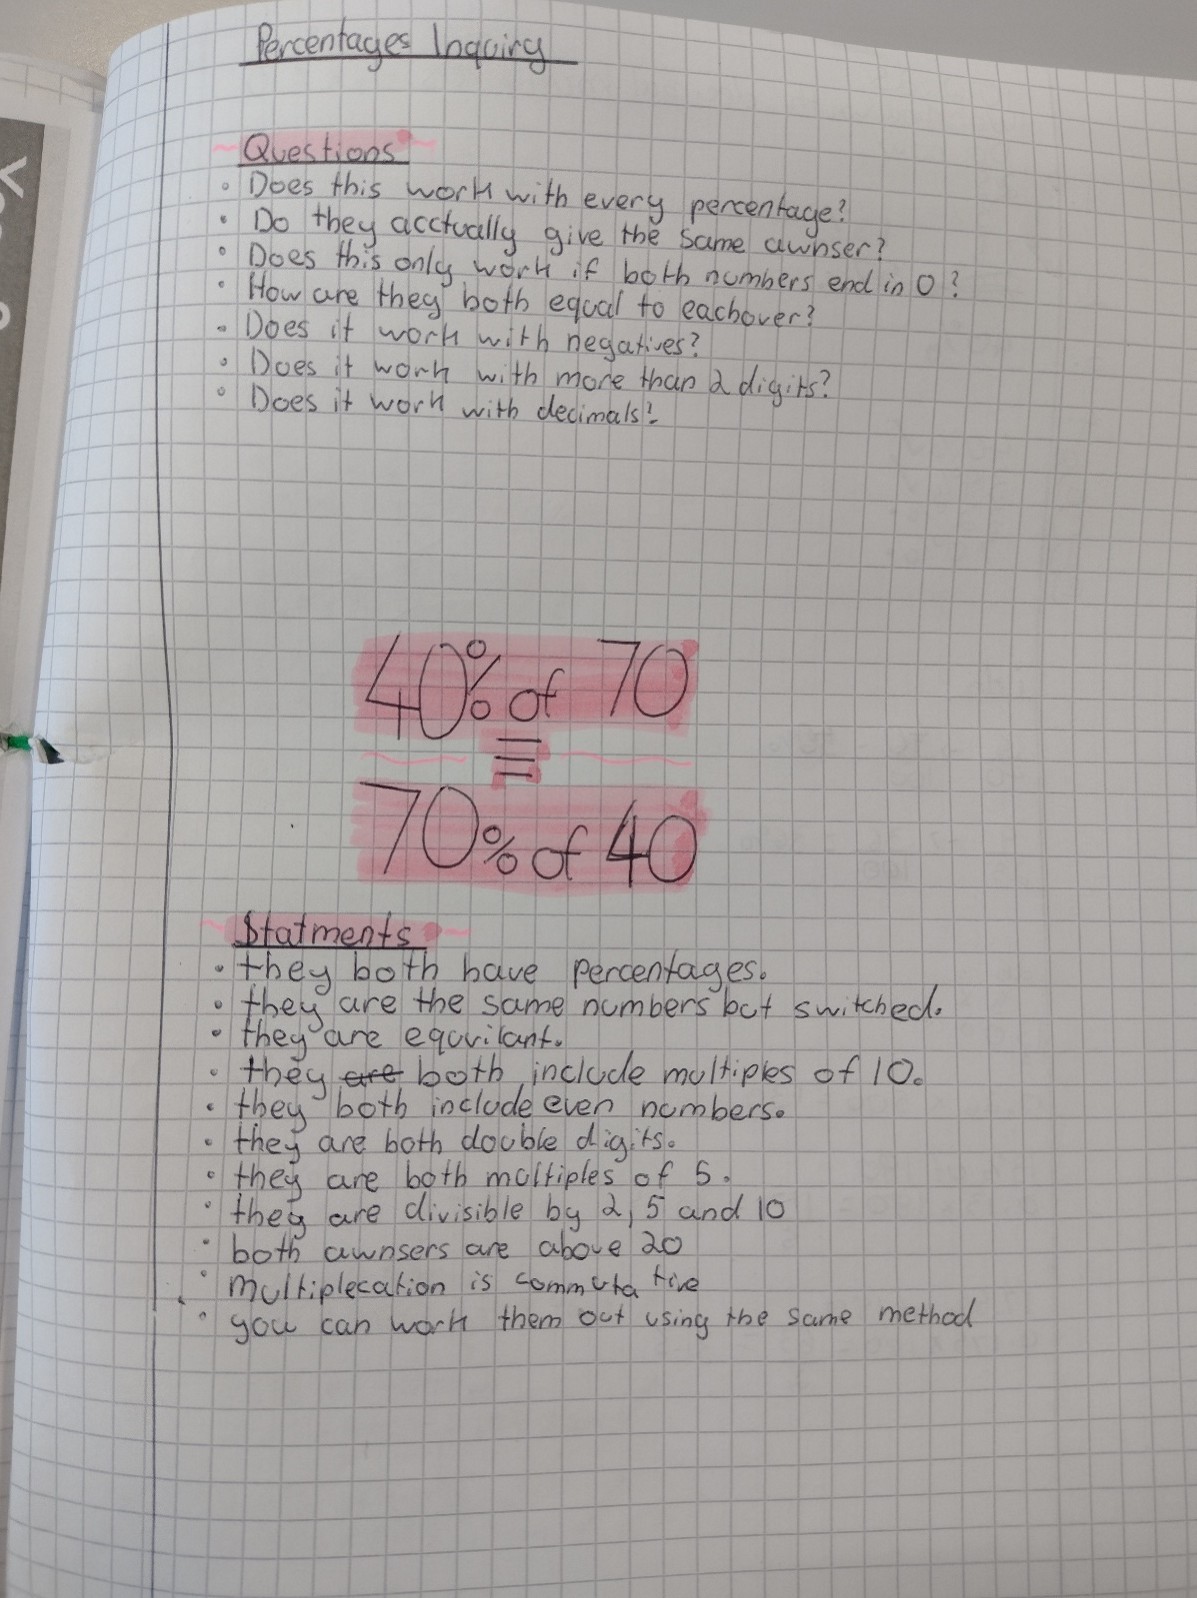 Percentages Inquiry
Questions
• Does this work with every percentage?
• Do they acctually give the same awnser?
• Does this only work if both numbers end in 0?
• How are they both equal to eachover?
• Does it work with negatives?
• Does it work with more than 2 digits?
• Does it work with decimals?
40% of 70
=
70% of 40
Statments
• they both have percentages.
• they are the same numbers but switched.
• they are equvilant.
• they are both include multiples of 10.
• they both include even numbers.
• they are both double digits.
• they are both multiples of 5.
• they are divisible by 2, 5 and 10
• both awnsers are above 20
• multiplecation is commutative
• you can work them out using the same method